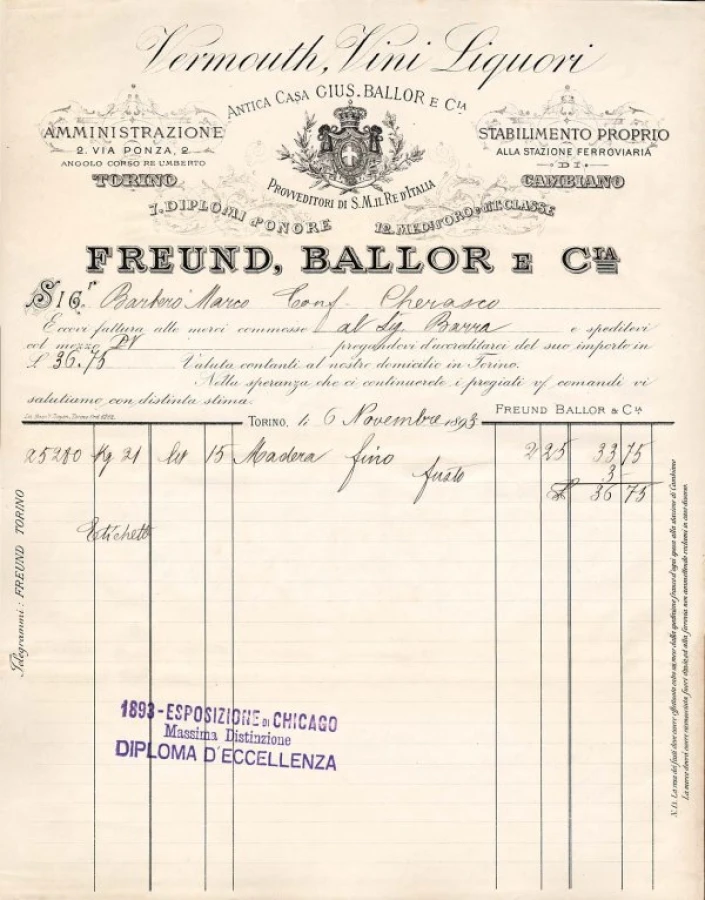 Vermouth, Vini Liquori
ANTICA CASA GIUS. BALLOR E CIA
AMMINISTRAZIONE
2. VIA PONZA, 2
ANGOLO CORSO RE UMBERTO
TORINO
PROVVEDITORI DI S.M. IL RE D'ITALIA
STABILIMENTO PROPRIO
ALLA STAZIONE FERROVIARIA
DI
CAMBIANO
7. DIPLOMI D'ONORE
12. MED. D'ORO DI 1ª CLASSE
FREUND, BALLOR E CIA
SIG.r Barbero Marco Conf. Cherasco
Eccovi fattura alle merci commesse al Sig. Barra e speditevi
col mezzo PV pregandovi d'accreditarci del suo importo in
£ 36.75 Valuta contanti al nostro domicilio in Torino.
Nella speranza che ci continuerete i pregiati v/ comandi vi
salutiamo con distinta stima.
FREUND BALLOR & CIA
TORINO, li 6 Novembre 1893
25280 Kg 21 lit 15 Madera fino 2 25 33 75
fusto 3
£ 36 75
Etichette
Telegrammi: FREUND TORINO
1893-ESPOSIZIONE DI CHICAGO
Massima Distinzione
DIPLOMA D'ECCELLENZA
N.B. La resa dei fusti deve essere effettuata entro un mese dalla spedizione franco d'ogni spesa alla stazione di Cambiano